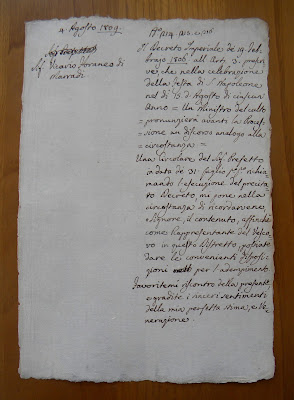 4. Agosto 1809.
Sig.r Vicario Foraneo di
Marradi
Il Decreto Imperiale de 19 Feb-
brajo 1806, all'Art. 3. prescri-
ve, che nella celebrazione
della festa di S. Napoleone
nel dì 15 d'Agosto di ciascun
Anno = Un Ministro del culto
= pronunzierà avanti la Proces-
sione un discorso analogo alla
= circostanza =
Una Circolare del Sig.r Prefetto
in data de 31 Luglio p.p. richia-
mando l'esecuzione del preci-
tato Decreto, mi pone nella
circostanza di ricordarvene,
o Signore, il contenuto, affinchè
come Rappresentante del Vesco-
vo in questo Distretto, possiate
dare le convenienti disposi-
zioni per l'adempimento.
Favoritemi riscontro della presente
e gradite i sinceri sentimenti
della mia perfetta stima, e Ve-
nerazione.